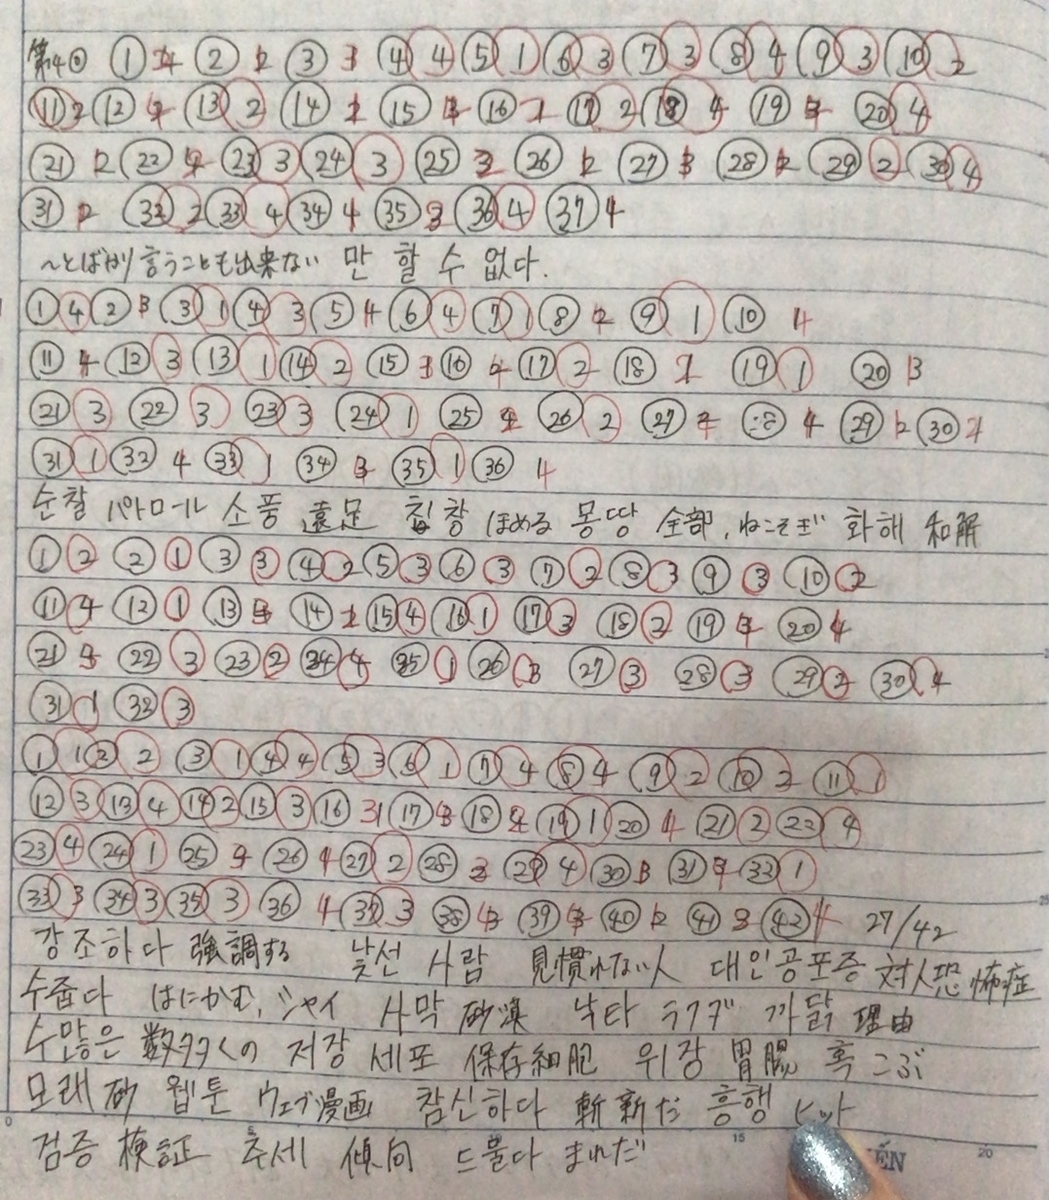 第40 ① 4 ② 2 ③ 3 ④ 4 ⑤ 1 ⑥ 3 ⑦ 3 ⑧ 4 ⑨ 3 ⑩ 2
⑪ 2 ⑫ ⑬ 2 ⑭ 1 ⑮ ⑯ 1 ⑰ 2 ⑱ 4 ⑲ ⑳ 4
㉑ 2 ㉒ 4 ㉓ 3 ㉔ 3 ㉕ ㉖ 2 ㉗ 3 ㉘ 2 ㉙ 2 ㉚ 4
㉛ 2 ㉜ 2 ㉝ 4 ㉞ 4 ㉟ ㊱ 4 ㊲ 4
〜とばかり言うことも出来ない 만 할 수 없다.
① 4 ② 3 ③ 1 ④ 3 ⑤ 4 ⑥ 4 ⑦ 1 ⑧ 2 ⑨ 1 ⑩ 4
⑪ 4 ⑫ 3 ⑬ 1 ⑭ 2 ⑮ 3 ⑯ ⑰ 2 ⑱ 1 ⑲ 1 ⑳ 3
㉑ 3 ㉒ 3 ㉓ 3 ㉔ 1 ㉕ ㉖ 2 ㉗ ㉘ 4 ㉙ 2 ㉚
㉛ 1 ㉜ 4 ㉝ 1 ㉞ 3 ㉟ 1 ㊱ 4
순찰 パトロール 소풍 遠足 칭찬 ほめる 몽땅 全部,ねこそぎ 화해 和解
① 2 ② 1 ③ 3 ④ 2 ⑤ 3 ⑥ 3 ⑦ 2 ⑧ 3 ⑨ 3 ⑩ 2
⑪ 4 ⑫ 1 ⑬ ⑭ 1 ⑮ 4 ⑯ 1 ⑰ 3 ⑱ 2 ⑲ ⑳ 4
㉑ ㉒ 3 ㉓ 2 ㉔ 4 ㉕ 1 ㉖ 3 ㉗ 3 ㉘ 3 ㉙ 2 ㉚ 4
㉛ 1 ㉜ 3
① 1 ② 2 ③ 1 ④ 4 ⑤ 3 ⑥ 1 ⑦ 4 ⑧ 4 ⑨ 2 ⑩ 2 ⑪ 1
⑫ 3 ⑬ 4 ⑭ 2 ⑮ 3 ⑯ ⑰ ⑱ ⑲ 1 ⑳ 4 ㉑ 2 ㉒ 4
㉓ 4 ㉔ 1 ㉕ ㉖ 4 ㉗ 2 ㉘ ㉙ 4 ㉚ 3 ㉛ ㉜ 1
㉝ 3 ㉞ 3 ㉟ 3 ㊱ 4 3 ㊳ ㊴ ㊵ 2 ㊶ 3 ㊷ 4 27/42
강조하다 強調する 낯선 사람 見慣れない人 대인공포증 対人恐怖症
수줍다 はにかむ,シャイ 사막 砂漠 낙타 ラクダ 까닭 理由
수많은 数多くの 저장 세포 保存細胞 위장 胃腸 혹 こぶ
모래 砂 웹툰 ウェブ漫画 참신하다 斬新だ 흥행 ヒット
검증 検証 추세 傾向 드물다 まれだ
0 5 15 20